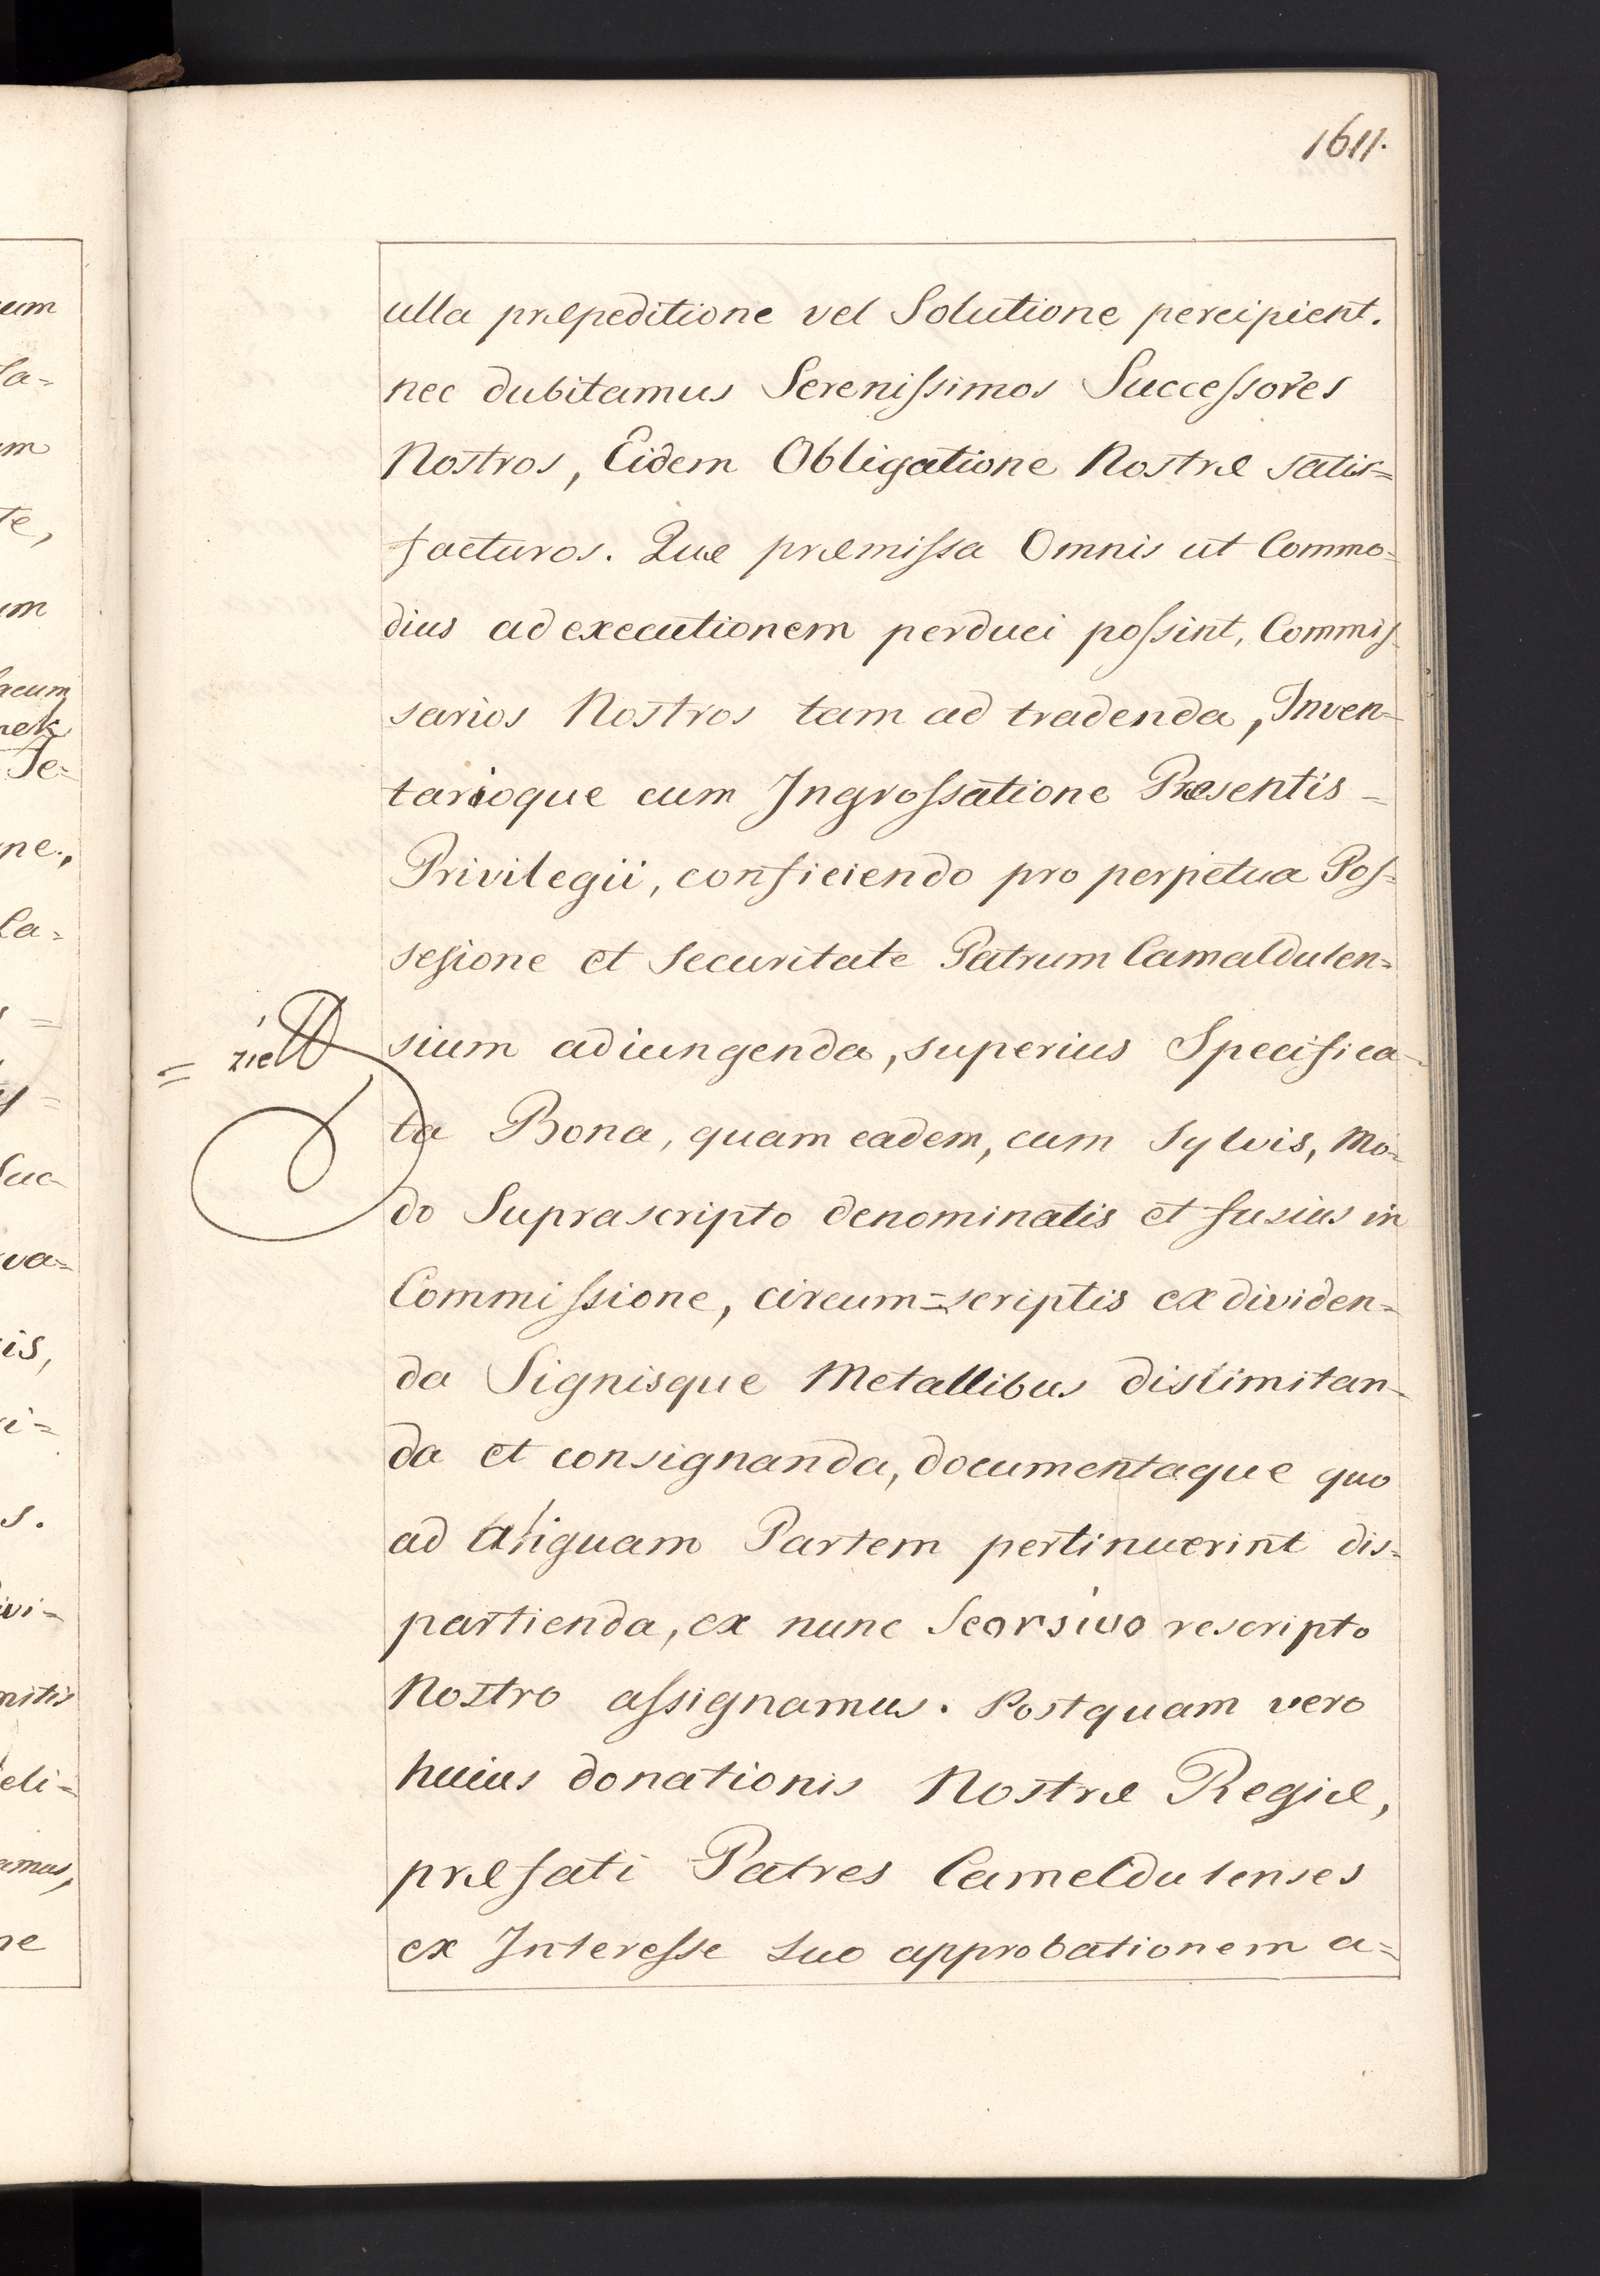 1611.
ulla præpeditione vel Solutione percipient.
nec dubitamus Serenissimos Successores
Nostros, Eidem Obligatione Nostræ satis=
facturos. Quæ præmissa Omnis ut Commo-
dius ad executionem perduci possint, Commis-
sarios Nostros tam ad tradenda, Inven-
tarioque cum Ingrossatione Præsentis =
Privilegii, conficiendo pro perpetua Pos=
sesione et Securitate Patrum Camaldulen=
sium adiungenda, superius Specifica-
ta Bona, quam eadem, cum Sylvis, Mo=
do Suprascripto denominatis et fusius in
Commissione, circum=scriptis ex dividen=
da Signisque Metallibus dislimitan-
da et consignanda, documentaque quo
ad aliquam Partem pertinuerint dis=
partienda, ex nunc Seorsivo rescripto
Nostro assignamus. Postquam vero
huius donationis Nostræ Regiæ,
præfati Patres Cameldulenses
ex Interesse Suo approbationem a=